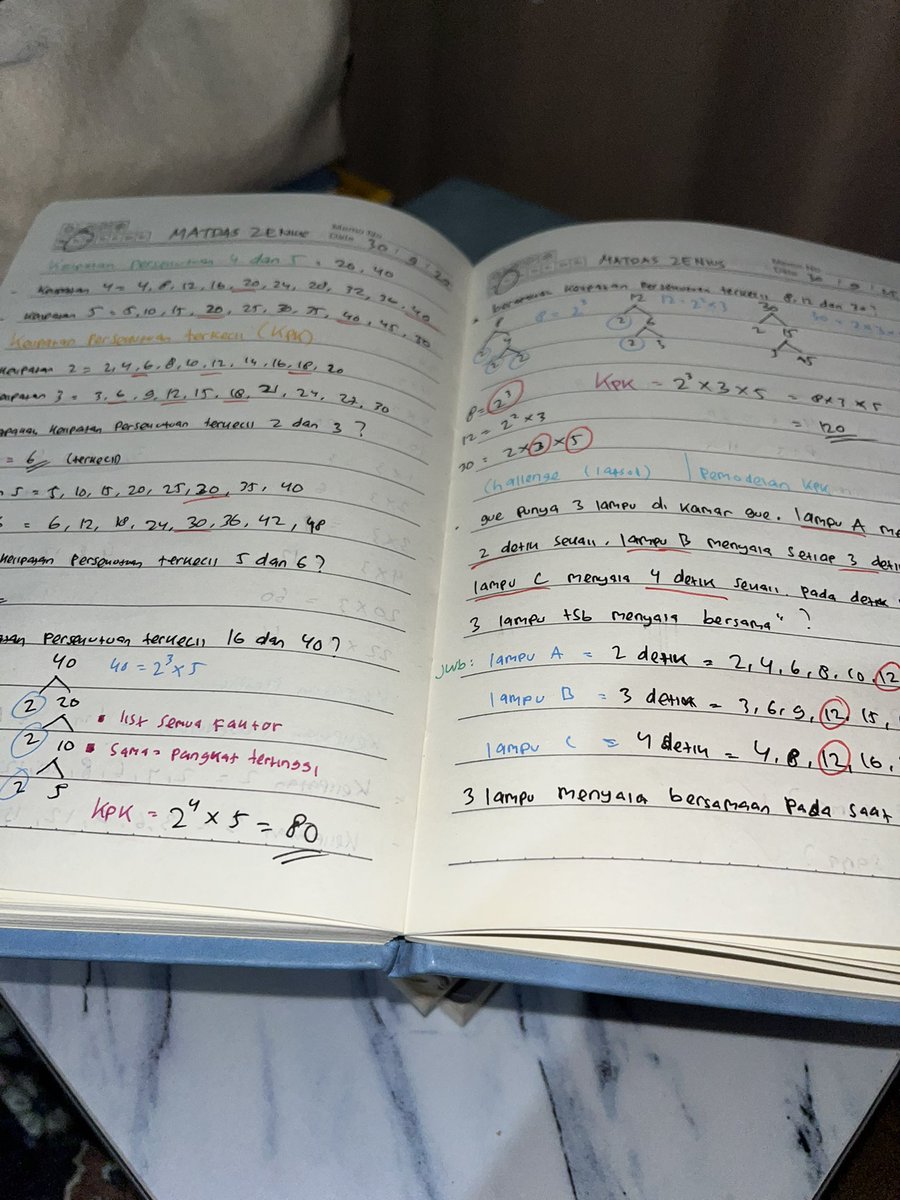 MATDAS ZENIUS
30 9
Kelipatan Persekutuan 4 dan 5 = 20, 40
Kelipatan 4 = 4, 8, 12, 16, 20, 24, 28, 32, 36, 40
Kelipatan 5 = 5, 10, 15, 20, 25, 30, 35, 40, 45, 50
Kelipatan Persekutuan terkecil (KPK)
Kelipatan 2 = 2, 4, 6, 8, 10, 12, 14, 16, 18, 20
3 = 3, 6, 9, 12, 15, 18, 21, 24, 27, 30
kelipatan Persekutuan terkecil 2 dan 3 ?
= 6 (terkecil)
5 = 5, 10, 15, 20, 25, 30, 35, 40
= 6, 12, 18, 24, 30, 36, 42, 48
kelipatan Persekutuan terkecil 5 dan 6 ?
=
Persekutuan terkecil 16 dan 40 ?
40 40 = 2³ × 5
2 20
2 10
2 5
• list semua faktor
• sama = pangkat tertinggi
KPK = 2⁴ × 5 = 80
MATDAS ZENIUS
kelipatan Persekutuan terkecil 8, 12 dan 30 ?
8 8 = 2³
12 12 = 2² × 3
2 6
2 3
30
2 15
3
8 = 2³
12 = 2² × 3
30 = 2 × 3 × 5
KPK = 2³ × 3 × 5 = 8 × 3 × 5
= 120
Challenge (latsol) | Pemodelan KPK
gue punya 3 lampu di kamar gue. lampu A
2 detik sekali. lampu B menyala setiap 3
lampu C menyala 4 detik sekali. pada detik
3 lampu tsb menyala bersama" ?
jwb: lampu A = 2 detik = 2, 4, 6, 8, 10, 12
lampu B = 3 detik = 3, 6, 9, 12, 15,
lampu C = 4 detik = 4, 8, 12, 16,
3 lampu menyala bersamaan pada saat